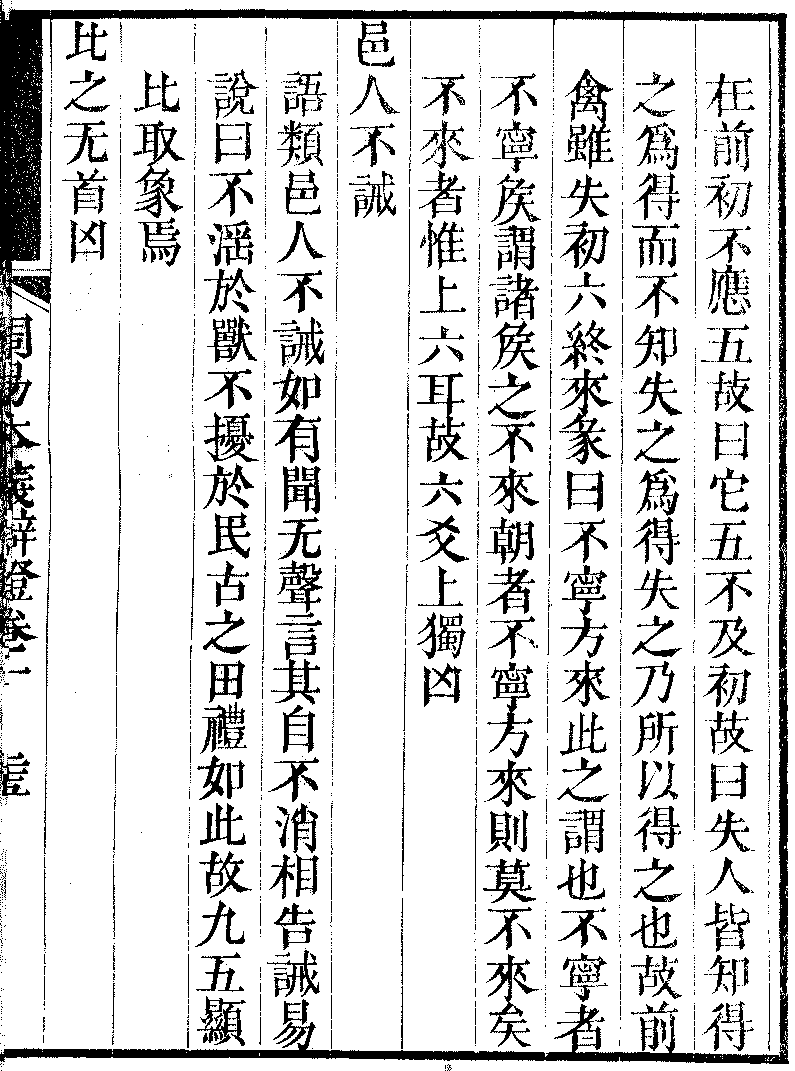 在前初不應五故曰它五不及初故曰失人皆知得
之爲得而不知失之爲得失之乃所以得之也故前
禽雖失初六終來彖曰不寧方來此之謂也不寧者
不寧矦謂諸矦之不來朝者不寧方來則莫不來矣
不來者惟上六耳故六爻上獨凶
邑人不誡
語類邑人不誡如有聞无聲言其自不消相告誡易
說曰不滛於獸不擾於民古之田禮如此故九五顯
比取象焉
比之无首凶
周易本義辯證卷二